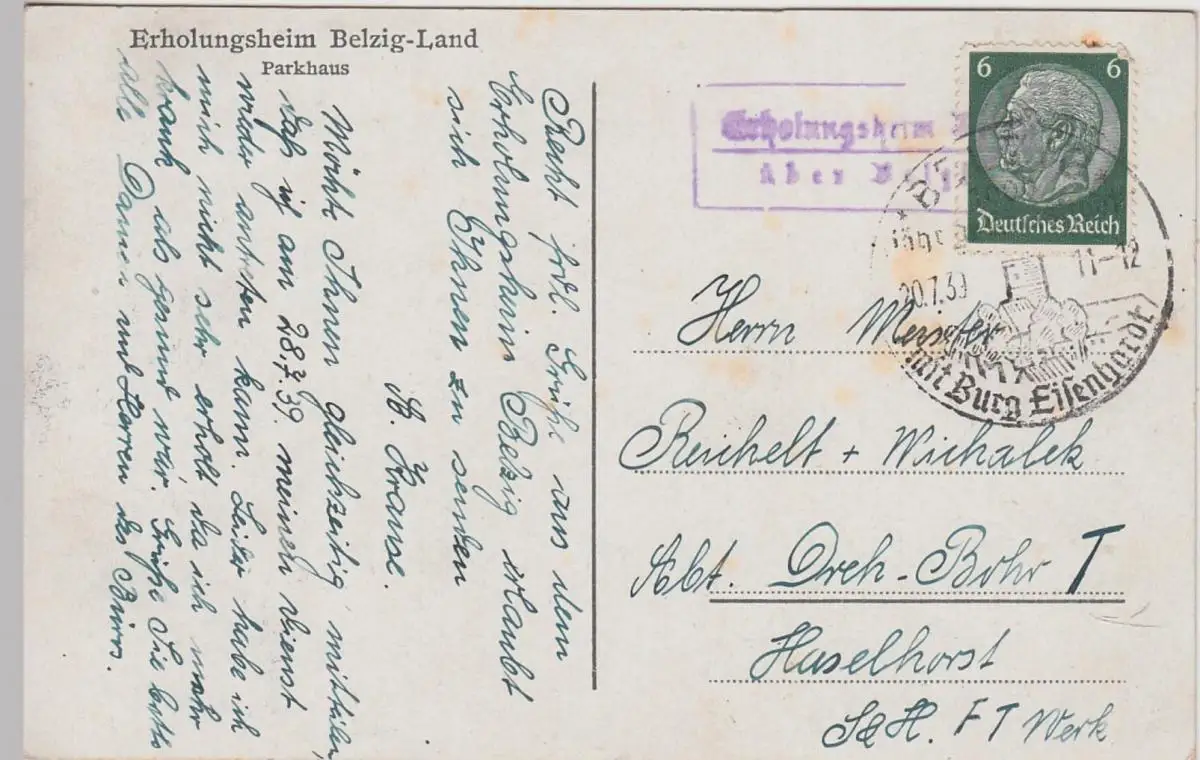 Erholungsheim Belzig-Land
Parkhaus
Recht frdl. Grüße aus dem
Erholungsheim Belzig erlaubt
sich Ihnen zu senden
A. Krause.
Möchte Ihnen gleichzeitig mitteilen,
daß ich am 28.7.39. meinen Dienst
wieder antreten kann. Leider habe ich
mich nicht sehr erholt da ich mehr
krank als gesund war. Grüße Sie bitte
alle Damen und Herren des Büros.
Erholungsheim
über Belzig
6 6
Deutsches Reich
Jahre
20.7.39 11-12
mit Burg Eisenhardt
Herrn Meister
Reichelt + Wichalek
Abt. Dreh-Bohr T
Haselhorst
S&H. F T Werk